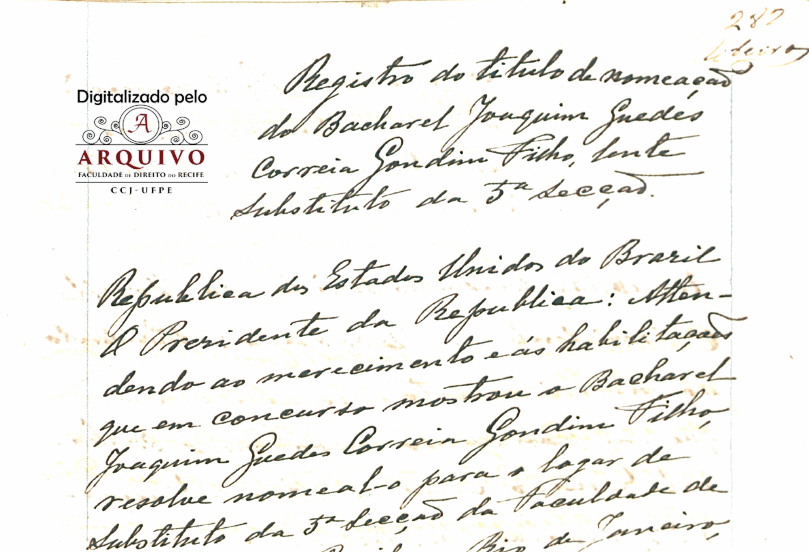 282
Digitalizado pelo
A
ARQUIVO
FACULDADE DE DIREITO DO RECIFE
CCJ-UFPE
Registro do titulo de nomeação
do Bacharel Joaquim Guedes
Correia Gondim Filho, lente
substituto da 5ª secção.
Republica dos Estados Unidos do Brazil
O Presidente da Republica: Atten-
dendo ao merecimento e ás habilitações
que em concurso mostrou o Bacharel
Joaquim Guedes Correia Gondim Filho,
resolve nomeal-o para o logar de
Substituto da 5ª Secção da Faculdade de
Rio de Janeiro,